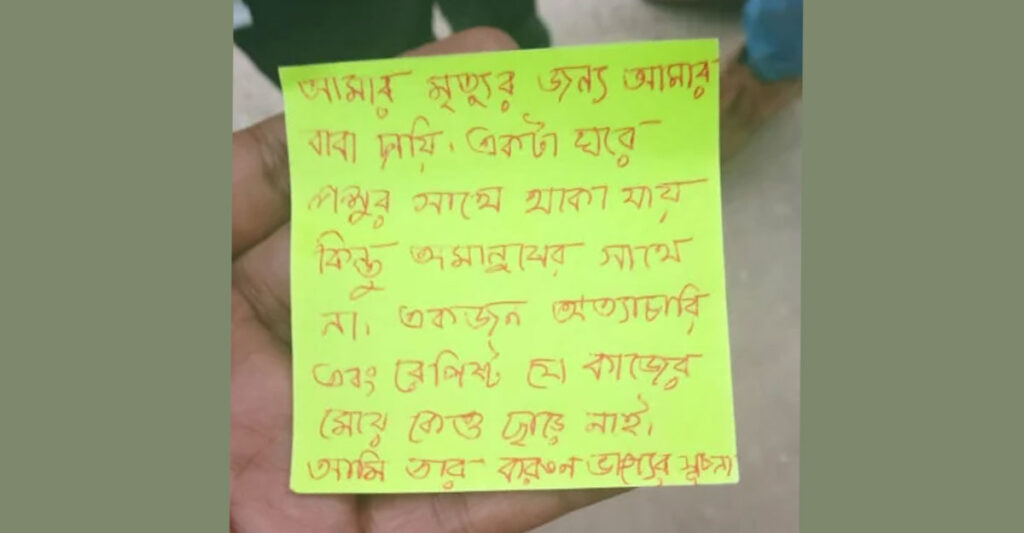 আমার মৃত্যুর জন্য আমার
বাবা দায়ি। একটা ঘরে
পশুর সাথে থাকা যায়
কিন্তু অমানুষের সাথে
না। একজন অত্যাচারি
এবং রেপিস্ট যে কাজের
মেয়ে কেও ছাড়ে নাই।
আমি তার করুন ভাগ্যের সূচনা